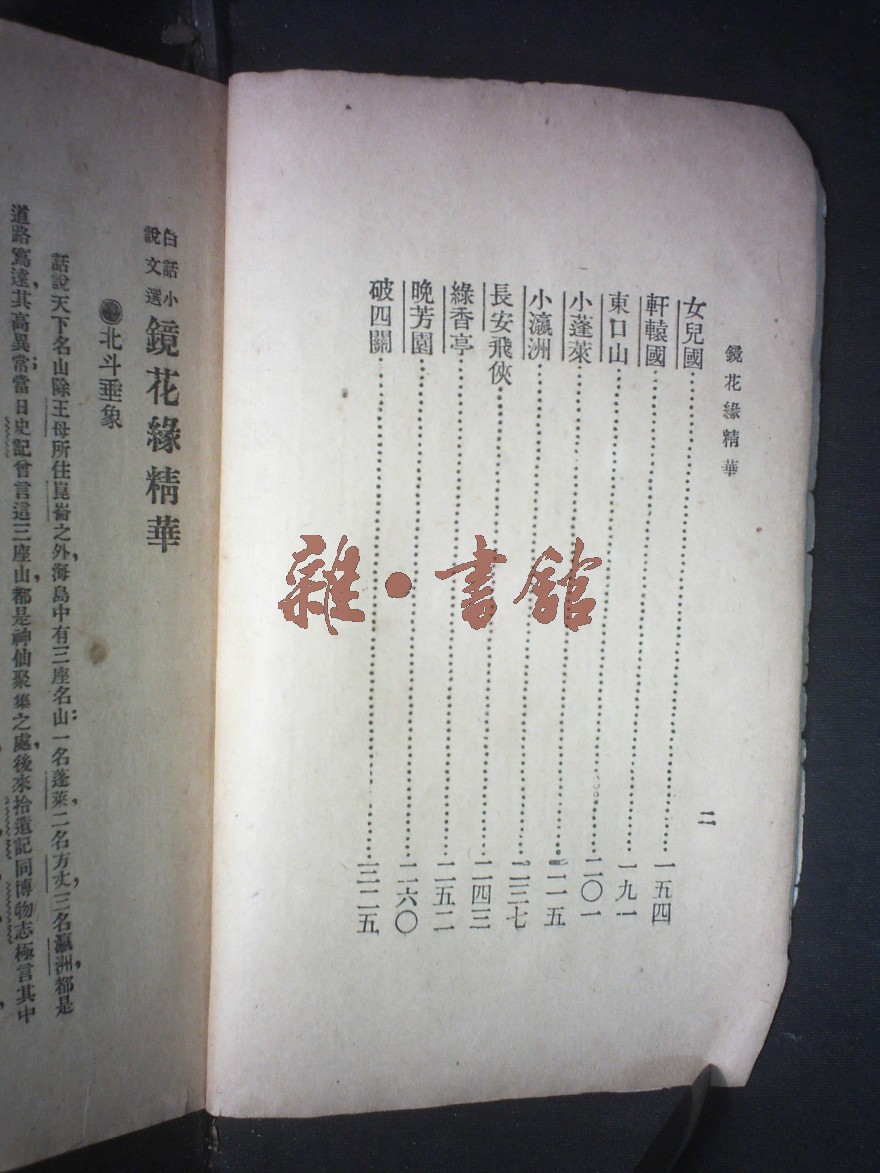 鏡花緣精華
二
女兒國……一五四
軒轅國……一九一
東口山……二〇一
小蓬萊……二一五
小瀛洲……二三七
長安飛俠……二四三
綠香亭……二五二
晚芳園……二六〇
破四關……三二五
白話小說文選 鏡花緣精華
北斗垂象
話說天下名山除王母所住崑崙之外，海島中有三座名山：一名蓬萊，二名方丈，三名瀛洲，都是
道路窵遠，其高異常；當日史記曾言這三座山，都是神仙聚集之處，後來拾遺記同博物志極言其中
雜·書館